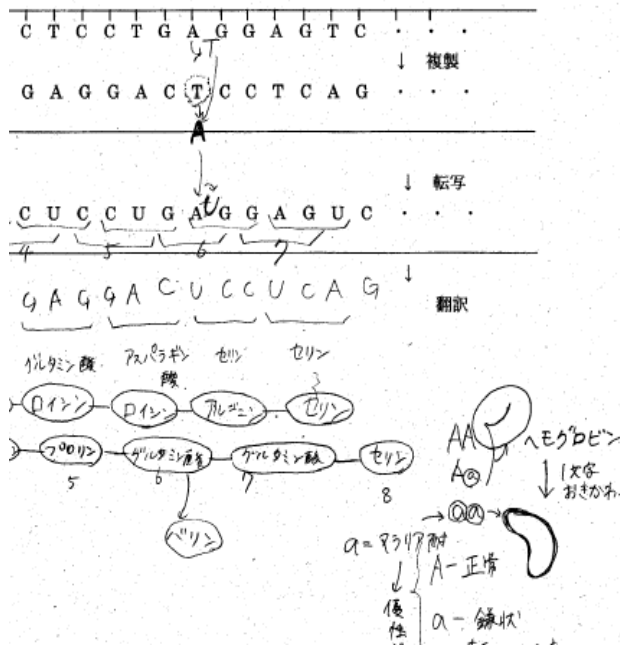 C T C C T G A G G A G T C · · ·
T
↓ 複製
G A G G A C T C C T C A G · · ·
A
↓ 転写
C U C C U G A G G A G U C · · ·
U
4 5 6 7
↓
G A G G A C U C C U C A G
翻訳
グルタミン酸 アスパラギン酸 セリン セリン
ロイシン ロイシン アルギニン セリン
プロリン グルタミン酸 グルタミン酸 セリン
5 6 7 8
バリン
AA ヘモグロビン
Aa ↓ 1文字
おきかわ
aa →
a = マラリア耐
A - 正常
↓
優性
a - 鎌状